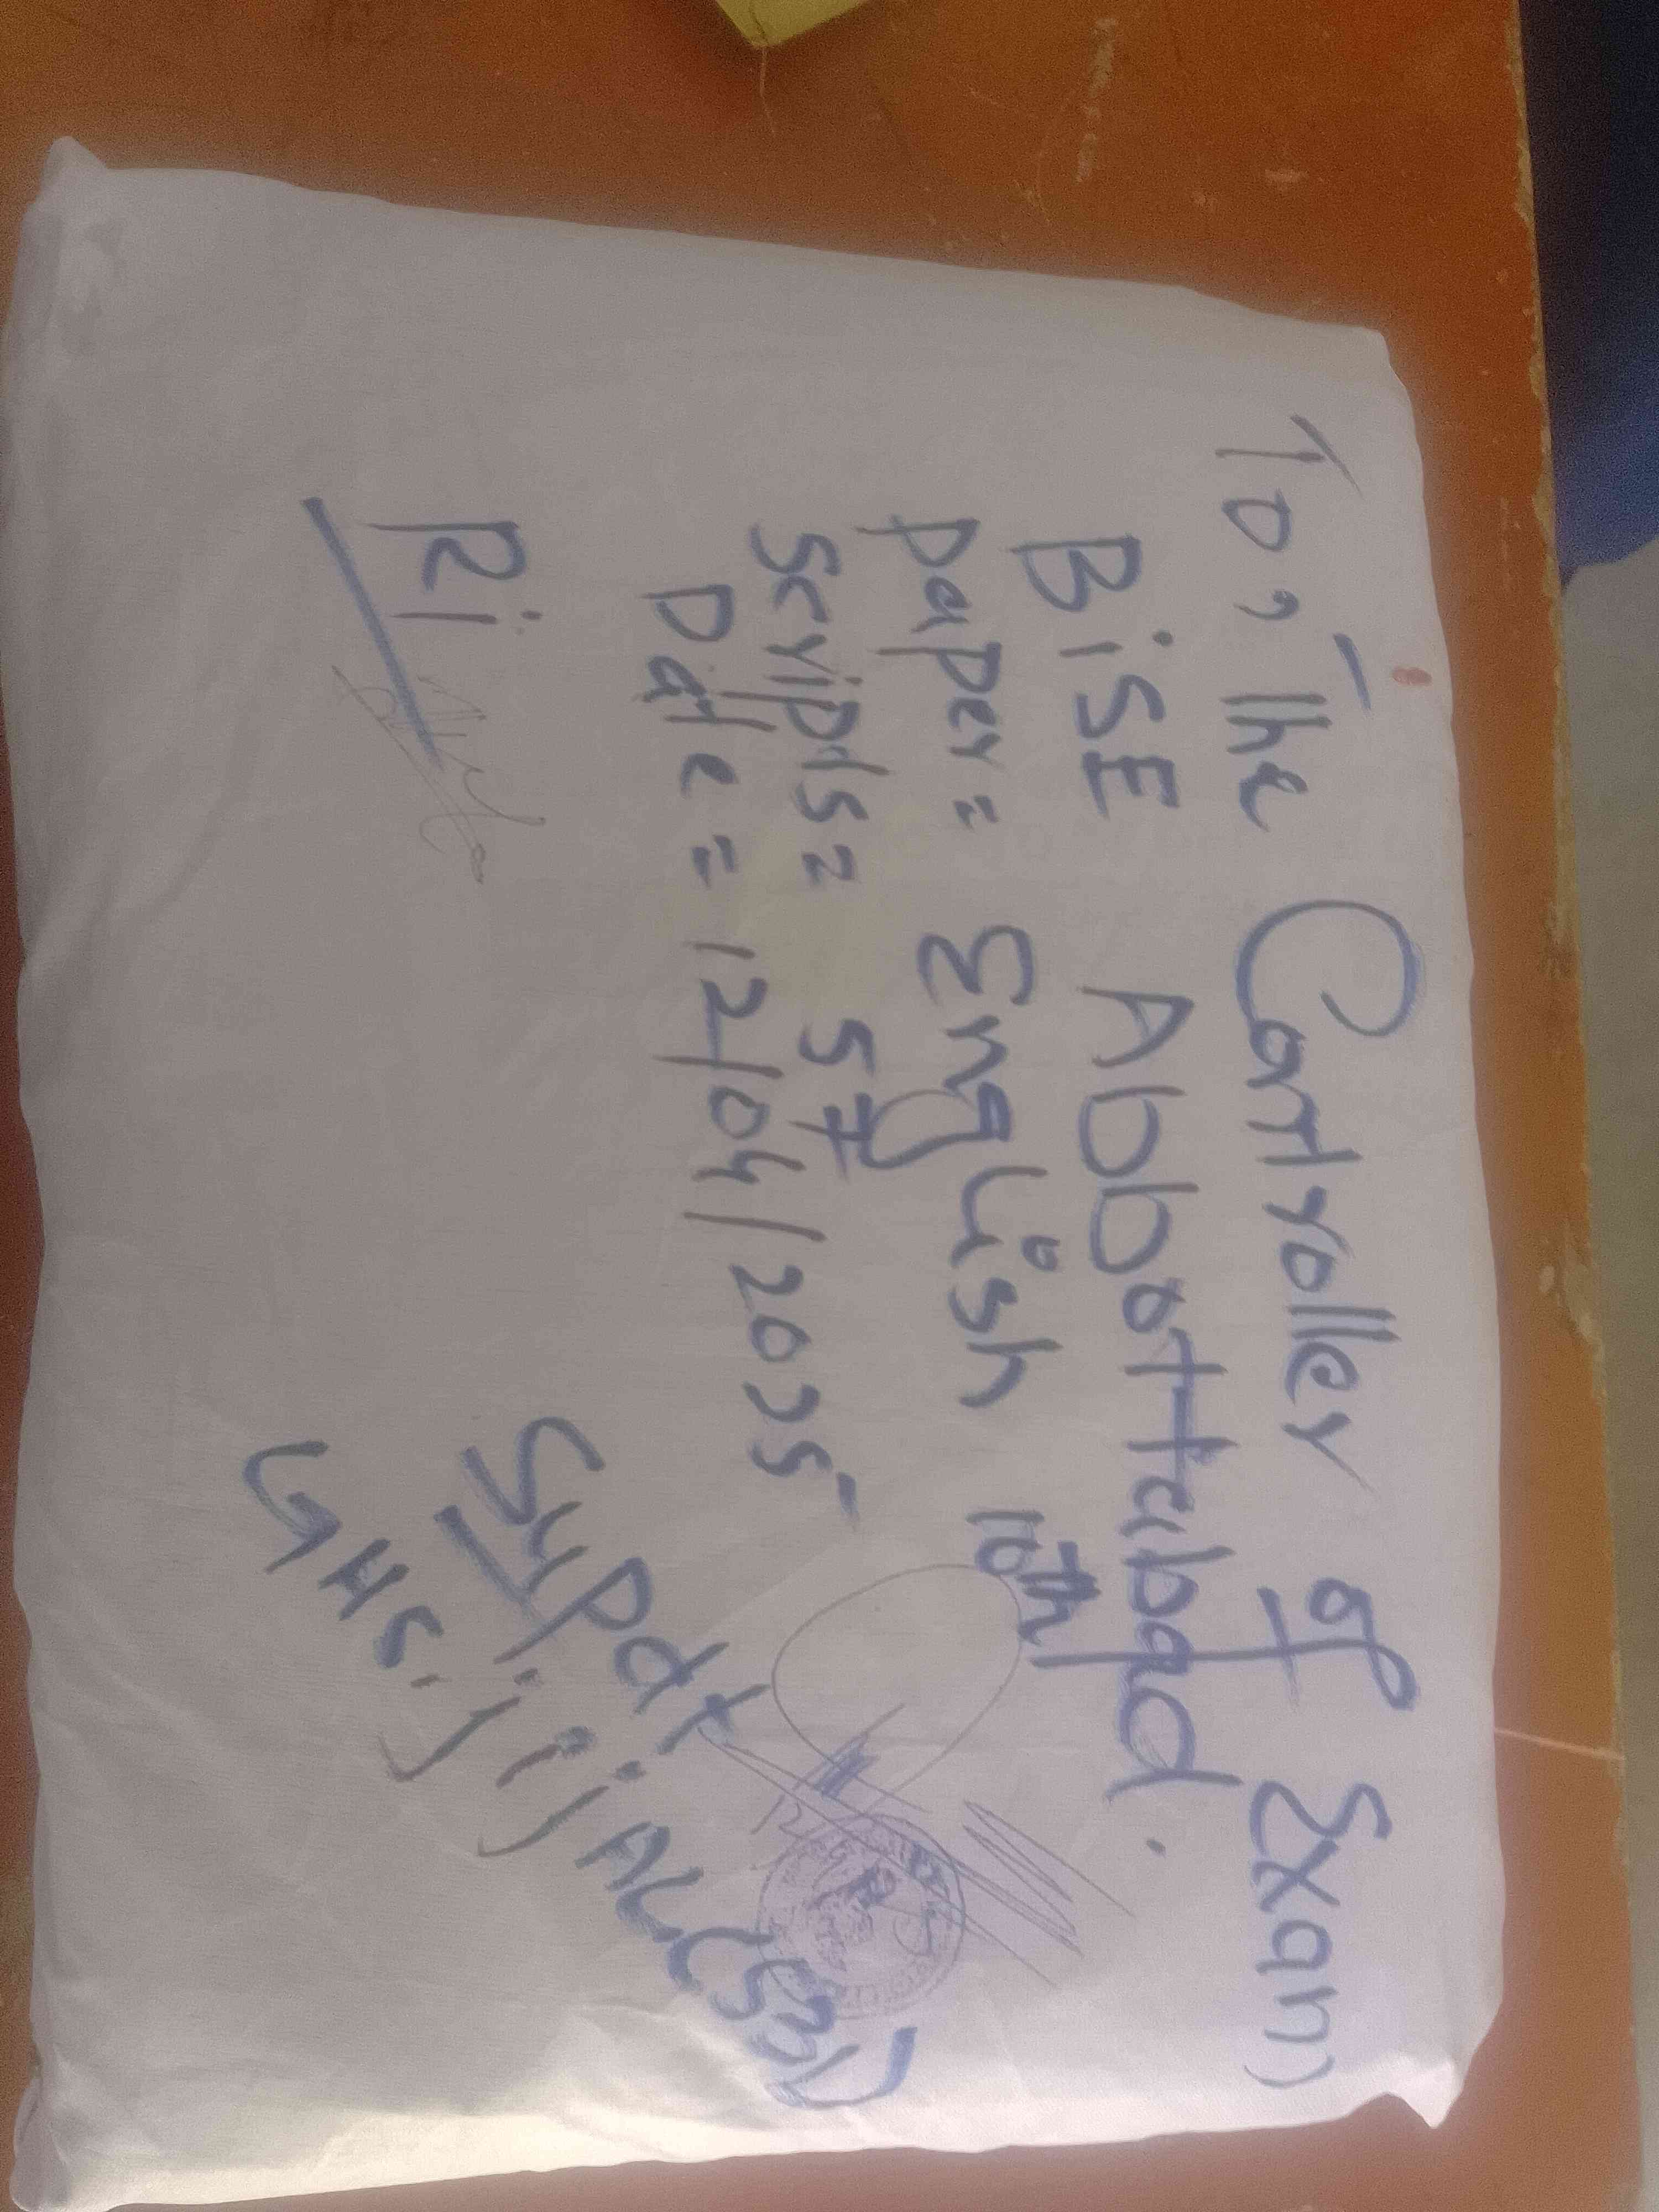 To, The Controller of Exam
BiSE Abbottabad.
paper = English 10th
Scripts = 57
Date = 12/04/2025
Ri
Supdt
GHS. jijAL (501)